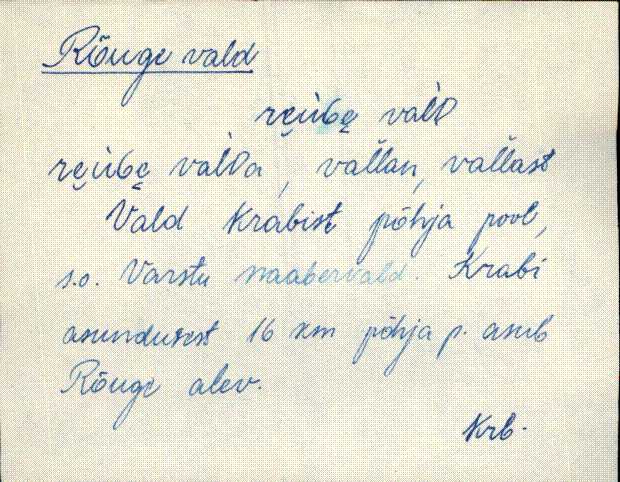 Rõuge vald
rẹiɢę valD
rẹiɢę valDa, vaĺlan, vaĺlast
Vald Krabist põhja pool,
s.o. Varstu naabervald. Krabi
asundusest 16 km põhja p. asub
Rõuge alev.
Krb.